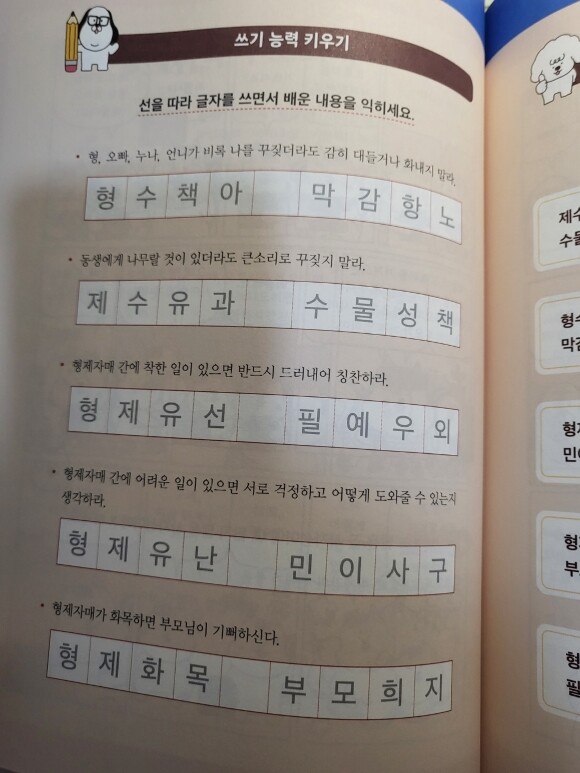 쓰기 능력 키우기
선을 따라 글자를 쓰면서 배운 내용을 익히세요.
• 형, 오빠, 누나, 언니가 비록 나를 꾸짖더라도 감히 대들거나 화내지 말라.
형수책아 막감항노
• 동생에게 나무랄 것이 있더라도 큰소리로 꾸짖지 말라.
제수유과 수물성책
• 형제자매 간에 착한 일이 있으면 반드시 드러내어 칭찬하라.
형제유선 필예우외
• 형제자매 간에 어려운 일이 있으면 서로 걱정하고 어떻게 도와줄 수 있는지
생각하라.
형제유난 민이사구
• 형제자매가 화목하면 부모님이 기뻐하신다.
형제화목 부모희지
제수
수물
형수
막감
형제
민이
형제
부모
형
필